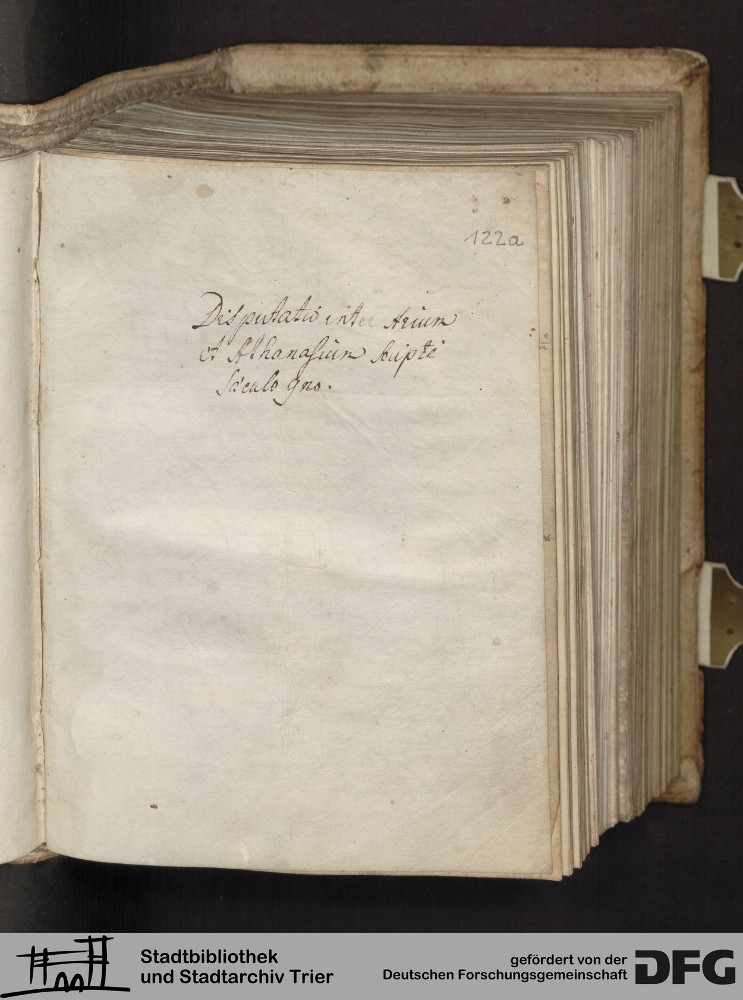 122a
Disputatio inter Arium
et Athanasium scripta
saeculo 9no.
Stadtbibliothek
und Stadtarchiv Trier
gefördert von der
Deutschen Forschungsgemeinschaft
DFG